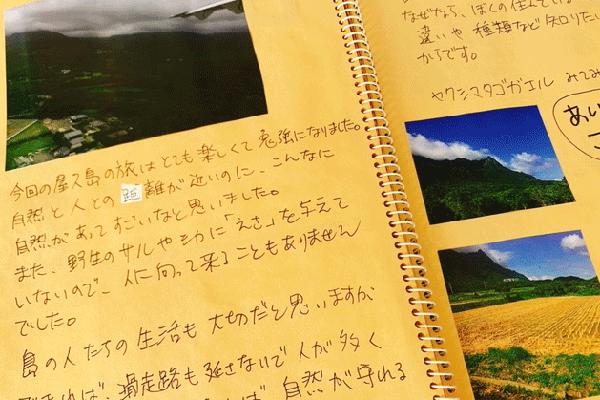 今回の屋久島の旅はとても楽しくて勉強になりました。
自然と人との距離が近いのに、こんなに
自然があってすごいなと思いました。
また、野生のサルやシカに「えさ」を与えて
いないので、人に向って来ることもありません
でした。
島の人たちの生活も大切だと思いますが
できれば、滑走路も延さないで人が多く
ば、自然が守れる
なぜなら、ぼくの住んでいる
違いや種類など知りたい
からです。
ヤクシマタゴガエル みてみ
あい